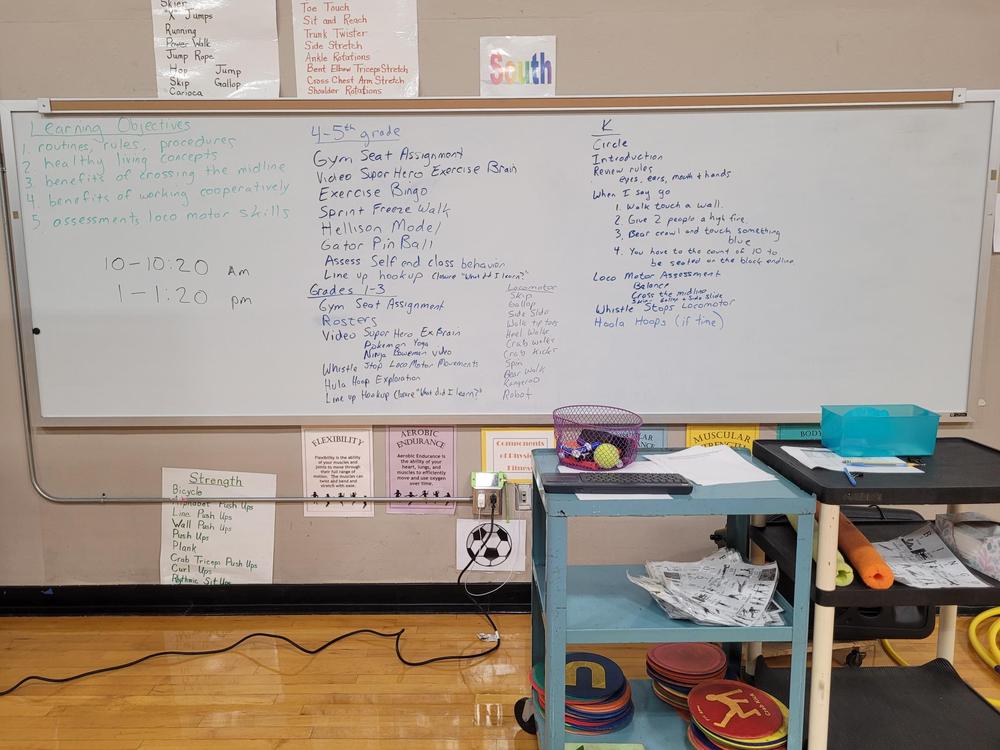 Skier
"X" Jumps
Running
Power Walk
Jump Rope
Hop Jump
Skip Gallop
Carioca
Toe Touch
Sit and Reach
Trunk Twister
Side Stretch
Ankle Rotations
Bent Elbow Triceps Stretch
Cross Chest Arm Stretch
Shoulder Rotations
South
Learning Objectives
1. routines, rules, procedures
2. healthy living concepts
3. benefits of crossing the midline
4. benefits of working cooperatively
5. assessments loco motor skills
10-10:20 Am
1-1:20 pm
4-5th grade
Gym Seat Assignment
Video Super Hero Exercise Brain
Exercise Bingo
Sprint Freeze Walk
Hellison Model
Gator Pin Ball
Assess Self end class behavior
Line up hookup Closure "What did I learn?"
Grades 1-3
Gym Seat Assignment
Rosters
Video Super Hero Ex Brain
Pokemon Yoga
Ninja Bowman video
Whistle Stop Loco Motor Movements
Hula Hoop Exploration
Line up Hookup Closure "What did I learn?"
Locomotor
Skip
Gallop
Side Slide
Walk tip toes
Heel Walk
Crab walk
Crab Kicks
Spin
Bear Walk
Kangaroo
Robot
K
Circle
Introduction
Review rules
eyes, ears, mouth & hands
When I say go
1. Walk touch a wall.
2. Give 2 people a high five
3. Bear crawl and touch something
blue
4. You have to the count of 10 to
be seated on the black endline
Loco Motor Assessment
Balance
Cross the midline
Skip Gallop & Side Slide
Whistle Stops Locomotor
Hoola Hoops (if time)
FLEXIBILITY
Flexibility is the ability of your muscles and joints to move through their full range of motion. Flexible muscles can twist and bend with ease.
AEROBIC
ENDURANCE
Aerobic Endurance is the ability of your heart, lungs, and muscles to efficiently move and use oxygen over time.
Components
of Physical
Fitness
MUSCULAR
BODY
Strength
Bicycle
Alphabet Push Ups
Line Push Ups
Wall Push Ups
Push Ups
Plank
Crab Triceps Push Ups
Curl Ups
Rhythmic Sit Ups
Crab Walk